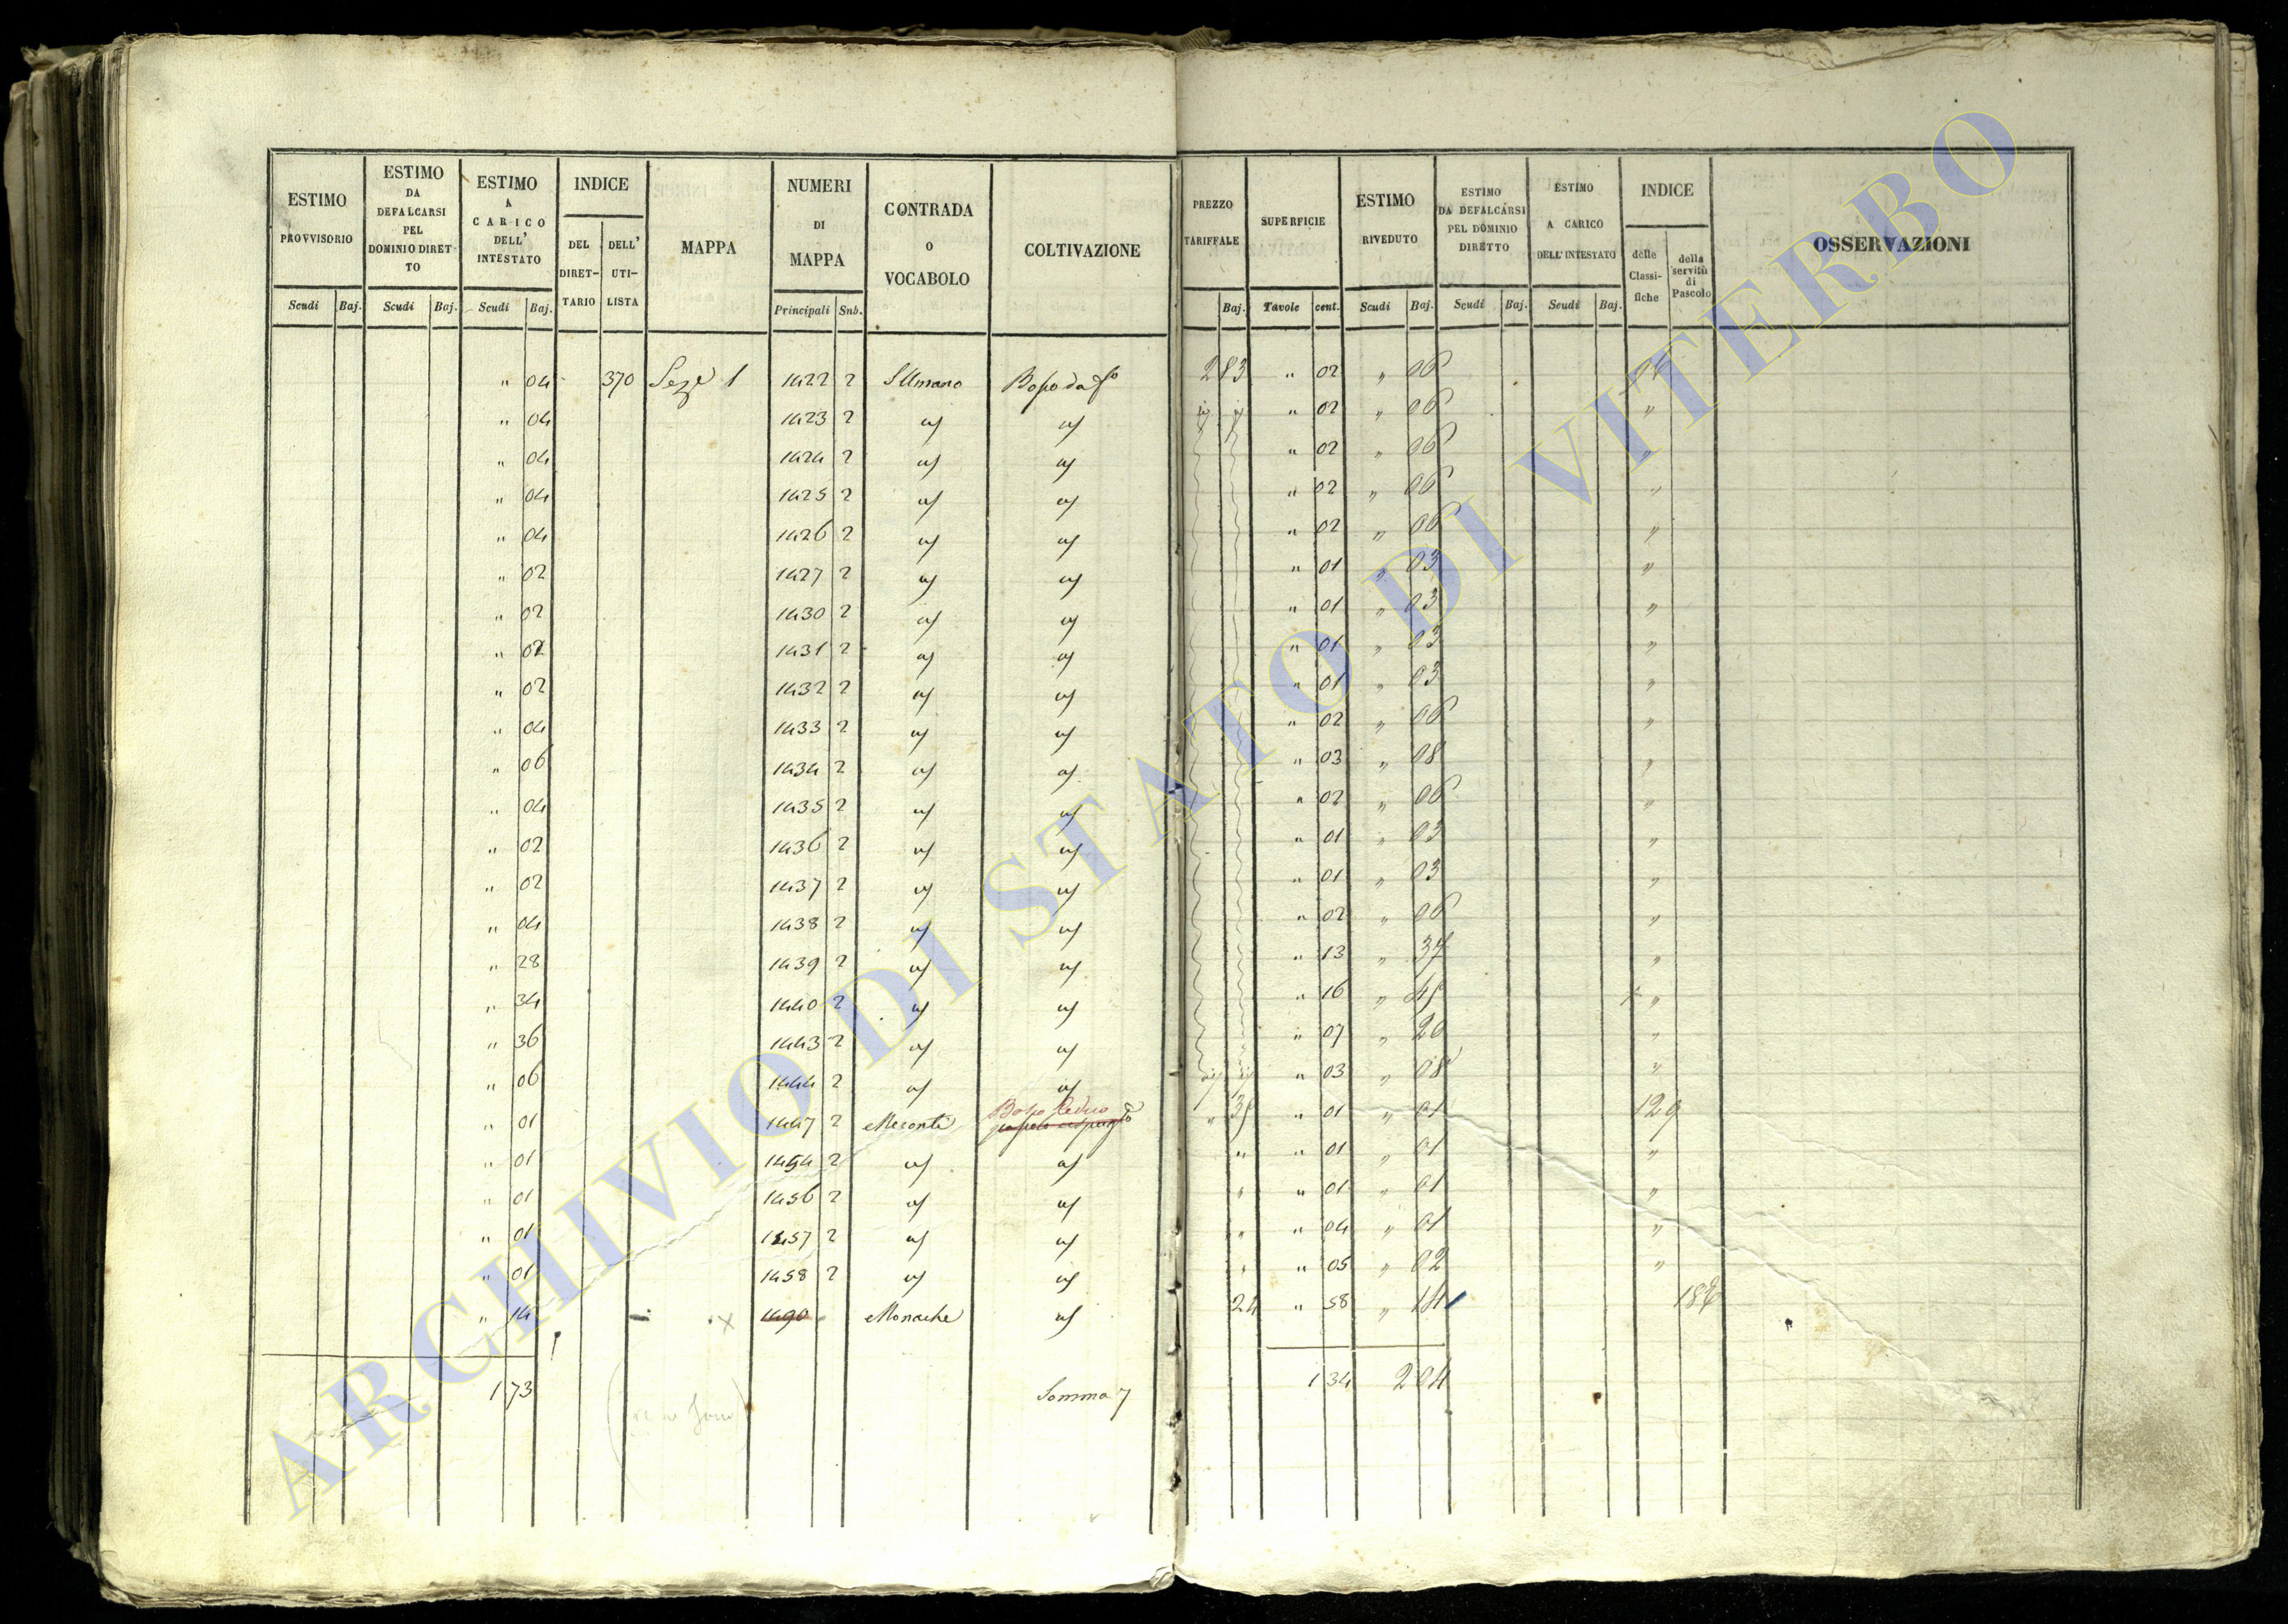 ESTIMO PROVVISORIO Scudi Baj.
ESTIMO DA DEFALCARSI PEL DOMINIO DIRETTO Scudi Baj.
ESTIMO A CARICO DELL' INTESTATO Scudi Baj.
INDICE DEL DIRETTARIO DELL' UTILISTA
MAPPA
NUMERI DI MAPPA Principali Snb.
CONTRADA O VOCABOLO
COLTIVAZIONE
PREZZO TARIFFALE Baj.
SUPERFICIE Tavole cent.
ESTIMO RIVEDUTO Scudi Baj.
ESTIMO DA DEFALCARSI PEL DOMINIO DIRETTO Scudi Baj.
ESTIMO A CARICO DELL' INTESTATO Scudi Baj.
INDICE delle Classifiche della servitù di Pascolo
OSSERVAZIONI
" 04 370 Seze 1 1422 2 283 " 02 " 06
" 04 1423 2 " 02 " 06 "
" 04 1424 2 " 02 " 06 "
" 04 1425 2 " 02 " 06 "
" 04 1426 2 " 02 " 06 "
" 02 1427 2 " 01 " 03 "
" 02 1430 2 " 01 " 03 "
" 02 1431 2 " 01 " 03 "
" 02 1432 2 " 01 " 03 "
" 04 1433 2 " 02 " 06 "
" 06 1434 2 " 03 " 08 "
" 04 1435 2 " 02 " 06 "
" 02 1436 2 " 01 " 03 "
" 02 1437 2 " 01 " 03 "
" 04 1438 2 " 02 " 06 "
" 28 1439 2 " 13 " 37 "
" 34 1440 2 " 16 " 45 "
" 36 1443 2 " 07 " 20 "
" 06 1444 2 " 03 " 08 "
" 01 1447 2 " 01 " 01 129
" 01 1454 2 " " 01 " 01 "
" 01 1456 2 " " 01 " 01 "
" 01 1457 2 " " 04 " 01 "
" 01 1458 2 " " 05 " 02 "
" 14 1490 Monache 24 " 58 " 14
1 73 Somma 1 34 2 04
ARCHIVIO DI STATO DI VITERBO